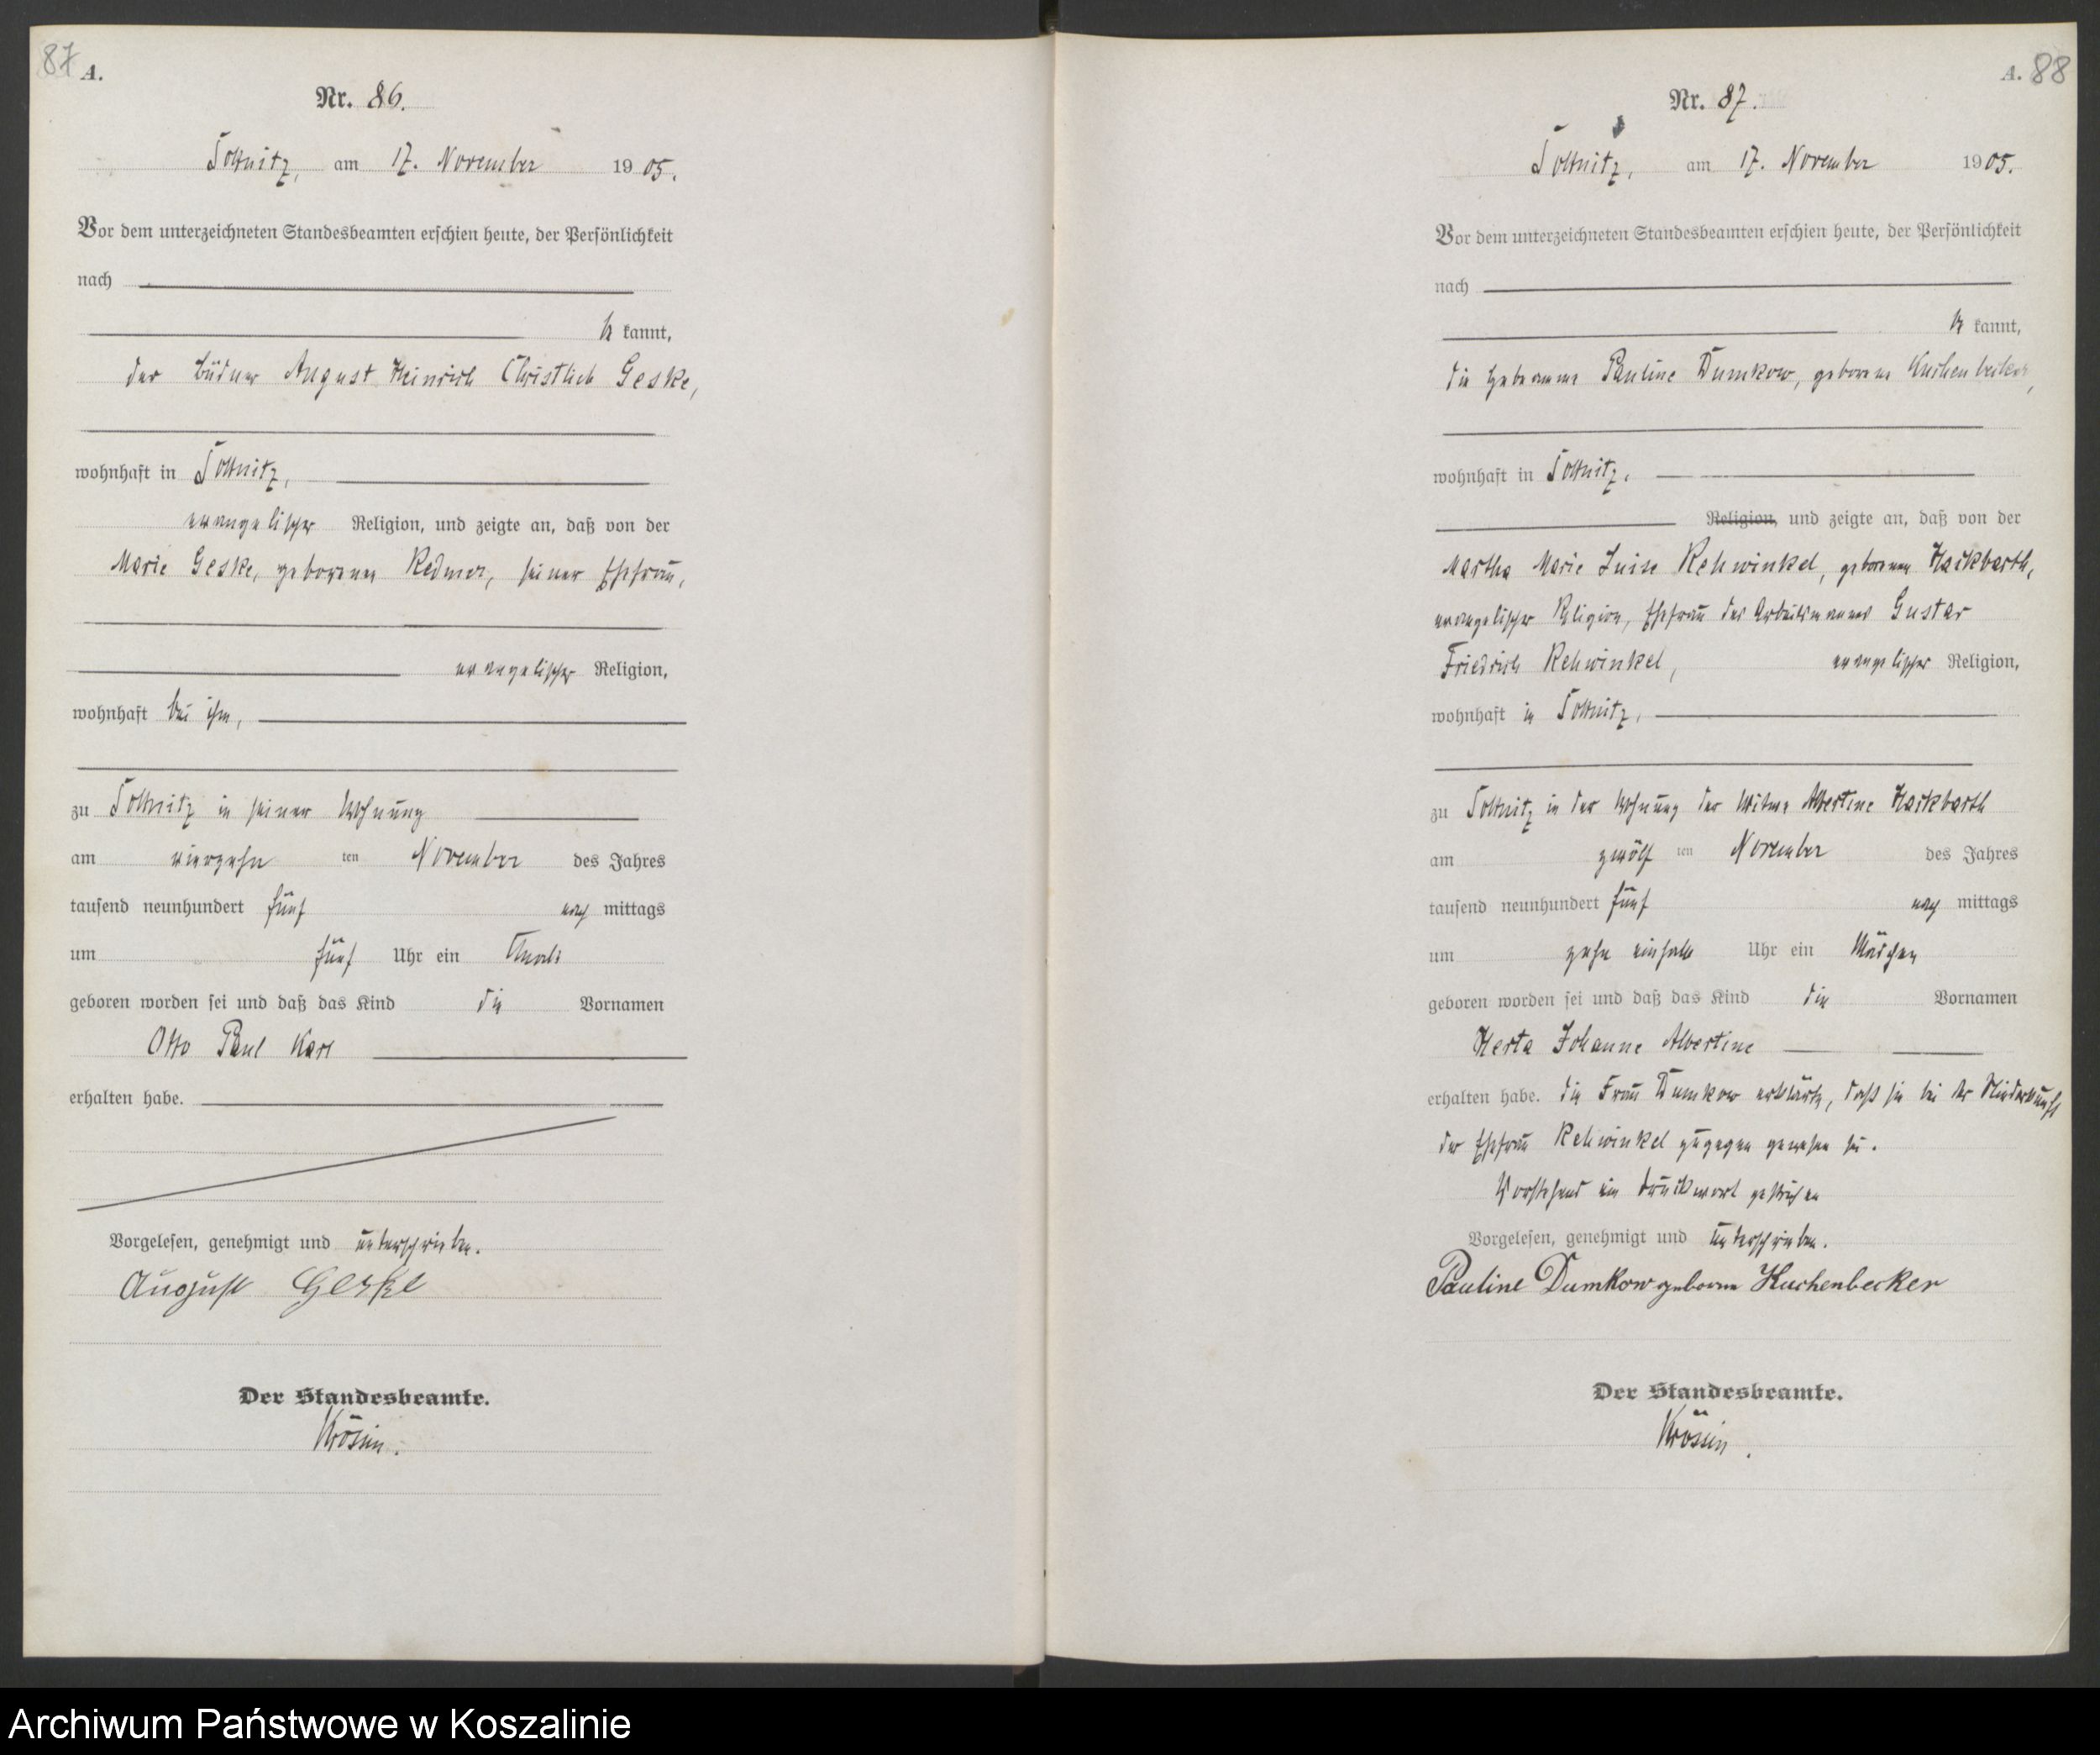 87
A.
Nr. 86.
Soltnitz, am 17. November 1905.
Vor dem unterzeichneten Standesbeamten erschien heute, der Persönlichkeit
nach
be kannt,
der Büdner August Heinrich Christlieb Geske,
wohnhaft in Soltnitz,
evangelischer Religion, und zeigte an, daß von der
Marie Geske, geborenen Redmer, seiner Ehefrau,
evangelischer Religion,
wohnhaft bei ihm,
zu Soltnitz in seiner Wohnung
am vierzehn ten November des Jahres
tausend neunhundert fünf nach mittags
um fünf Uhr ein Knabe
geboren worden sei und daß das Kind die Vornamen
Otto Paul Karl
erhalten habe.
Vorgelesen, genehmigt und unterschrieben.
August Geske
Der Standesbeamte.
A. 88
Nr. 87.
Soltnitz, am 17. November 1905.
Vor dem unterzeichneten Standesbeamten erschien heute, der Persönlichkeit
nach
be kannt,
die Hebamme Pauline Dumkow, geborene Kuchenbecker,
wohnhaft in Soltnitz,
Religion, und zeigte an, daß von der
Martha Marie Luise Rehwinkel, geborenen Hackbarth,
evangelischer Religion, Ehefrau des Arbeitsmannes Gustav
Friedrich Rehwinkel, evangelischer Religion,
wohnhaft in Soltnitz,
zu Soltnitz in der Wohnung der Witwe Albertine Hackbarth
am zwölf ten November des Jahres
tausend neunhundert fünf nach mittags
um zehn einhalb Uhr ein Mädchen
geboren worden sei und daß das Kind die Vornamen
Herta Johanne Albertine
erhalten habe. Die Frau Dumkow erklärte, daß sie bei der Niederkunft
der Ehefrau Rehwinkel zugegen gewesen sei.
Vorstehend ein Druckwort gestrichen
Vorgelesen, genehmigt und unterschrieben.
Pauline Dumkow geborene Kuchenbecker
Der Standesbeamte.
Archiwum Państwowe w Koszalinie